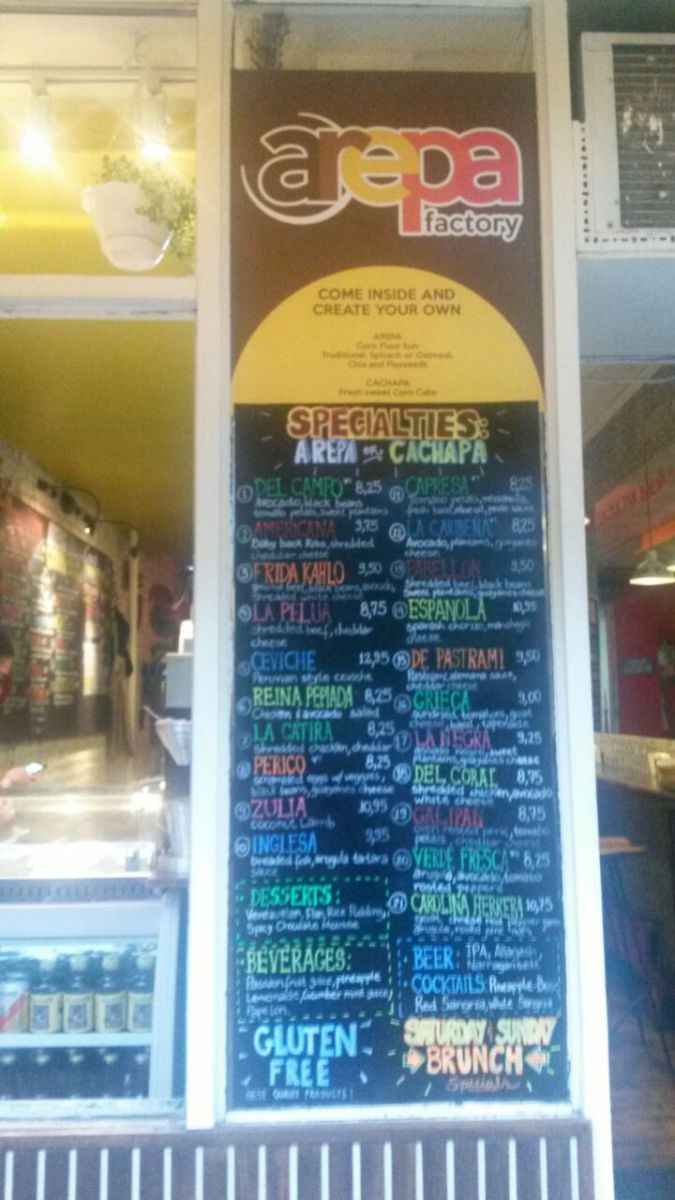 arepa
factory
COME INSIDE AND
CREATE YOUR OWN
AREPA
Corn Flour Bun
Traditional, Spinach or Oatmeal,
Chia and Flaxseeds
CACHAPA
Sweet Corn Cake
SPECIALTIES:
AREPA or CACHAPA
1 DEL CAMPO 8,25
Avocado, black beans
sweet plantains
2 AMERICANA 9,75
Baby back Ribs, shredded
cheddar cheese
3 FRIDA KAHLO 9,50
beef, black beans, avocado,
shredded white cheese
4 LA PELUA 8,75
shredded beef, cheddar
cheese
5 CEVICHE 12,95
Peruvian style ceviche
6 REINA PEPIADA 8,25
Chicken & avocado salad
7 LA CATIRA 8,25
shredded chicken, cheddar
8 PERICO 8,25
scrambled eggs w/ veggies,
black beans, guayanes cheese
9 ZULIA 10,95
coconut Lamb
10 INGLESA 9,95
breaded fish, arugula tartara
sauce
DESSERTS:
Flan, Rice Pudding,
Spicy Chocolate Mousse
BEVERAGES:
Passion fruit juice, pineapple
Lemonade, cucumber mint juice,
Papelon
GLUTEN
FREE
11 CAPRESA 8,25
12 8,25
Avocado, plantains, guayanes
cheese
13 PABELLON 9,50
Shredded beef, black beans
Sweet plantains, guayanes cheese
14 ESPAÑOLA 10,95
Spanish chorizo, manchego
cheese
15 DE PASTRAMI 9,50
Pastrami, alemana sauce,
cheddar cheese
16 GRIEGA 9,00
sundried tomatoes, goat
cheese, basil, tapenade
17 LA NEGRA 9,25
sweet
plantains, guayanes cheese
18 DEL CORAL 8,75
shredded chicken, avocado
white cheese
19 GALIPAN 8,75
tomato
20 VERDE FRESCA 8,25
arugula, avocado, tomato
roasted peppers
21 CAROLINA HERRERA 10,75
BEER: IPA, Allagash
Narragansett
COCKTAILS: Pineapple
Red Sangria, White Sangria
SATURDAY & SUNDAY
BRUNCH
Specials